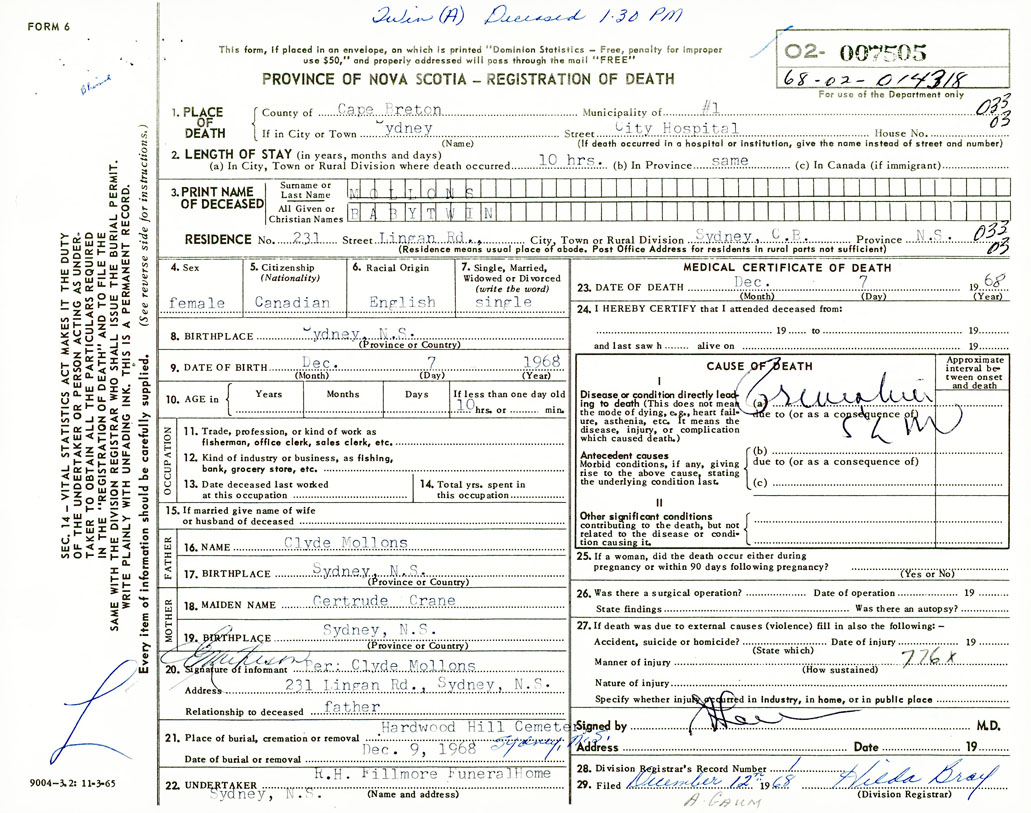 Twin (A) Deceased 1·30 PM
FORM 6
This form, if placed in an envelope, on which is printed "Dominion Statistics – Free, penalty for improper
use $50," and properly addressed will pass through the mail "FREE"
PROVINCE OF NOVA SCOTIA – REGISTRATION OF DEATH
02- 007505
68-02-014318
For use of the Department only
1. PLACE OF DEATH
County of Cape Breton Municipality of #1 033
If in City or Town ydney Street City Hospital House No. 03
(Name) (If death occurred in a hospital or institution, give the name instead of street and number)
2. LENGTH OF STAY (in years, months and days)
(a) In City, Town or Rural Division where death occurred 10 hrs. (b) In Province same (c) In Canada (if immigrant)
3. PRINT NAME OF DECEASED
Surname or Last Name MOLLONS
All Given or Christian Names BABYTWIN
RESIDENCE No. 231 Street Lingan Rd., City, Town or Rural Division Sydney, C.B. Province N.S. 033
03
(Residence means usual place of abode. Post Office Address for residents in rural parts not sufficient)
4. Sex
female
5. Citizenship
(Nationality)
Canadian
6. Racial Origin
English
7. Single, Married,
Widowed or Divorced
(write the word)
single
8. BIRTHPLACE ydney, N.S.
(Province or Country)
9. DATE OF BIRTH Dec. 7 1968
(Month) (Day) (Year)
10. AGE in Years Months Days If less than one day old
10 hrs. or min.
OCCUPATION
11. Trade, profession, or kind of work as
fisherman, office clerk, sales clerk, etc.
12. Kind of industry or business, as fishing,
bank, grocery store, etc.
13. Date deceased last worked
at this occupation
14. Total yrs. spent in
this occupation
15. If married give name of wife
or husband of deceased
FATHER
16. NAME Clyde Mollons
17. BIRTHPLACE Sydney, N.S.
(Province or Country)
MOTHER
18. MAIDEN NAME Gertrude Crane
19. BIRTHPLACE Sydney, N.S.
(Province or Country)
20. Signature of informant Per: Clyde Mollons
Address 231 Lingan Rd., Sydney, N.S.
Relationship to deceased father
21. Place of burial, cremation or removal Hardwood Hill Cemete
Date of burial or removal Dec. 9, 1968 Sydney, N.S.
22. UNDERTAKER R.H. Fillmore FuneralHome
Sydney, N.S. (Name and address)
MEDICAL CERTIFICATE OF DEATH
23. DATE OF DEATH Dec. 7 1968
(Month) (Day) (Year)
24. I HEREBY CERTIFY that I attended deceased from:
19 to 19
and last saw h alive on 19
CAUSE OF DEATH
Approximate interval between onset and death
I
Disease or condition directly leading to death (This does not mean the mode of dying, e.g., heart failure, asthenia, etc. It means the disease, injury, or complication which caused death.)
(a)
due to (or as a consequence of)
Antecedent causes
Morbid conditions, if any, giving rise to the above cause, stating the underlying condition last.
(b)
due to (or as a consequence of)
(c)
II
Other significant conditions
contributing to the death, but not related to the disease or condition causing it.
25. If a woman, did the death occur either during
pregnancy or within 90 days following pregnancy?
(Yes or No)
26. Was there a surgical operation? Date of operation 19
State findings Was there an autopsy?
27. If death was due to external causes (violence) fill in also the following: –
Accident, suicide or homicide? Date of injury 19
(State which)
Manner of injury 776x
(How sustained)
Nature of injury
Specify whether injury occurred in Industry, in home, or in public place
Signed by M.D.
Address Date 19
28. Division Registrar's Record Number
29. Filed December 12th 1968 Hilda Bray
(Division Registrar)
A. GAUM
SEC. 14 – VITAL STATISTICS ACT MAKES IT THE DUTY
OF THE UNDERTAKER OR PERSON ACTING AS UNDER-
TAKER TO OBTAIN ALL THE PARTICULARS REQUIRED
IN THE "REGISTRATION OF DEATH" AND TO FILE THE
SAME WITH THE DIVISION REGISTRAR WHO SHALL ISSUE THE BURIAL PERMIT.
WRITE PLAINLY WITH UNFADING INK. THIS IS A PERMANENT RECORD.
Every item of information should be carefully supplied. (See reverse side for instructions.)
9004–3.2: 11-3-65